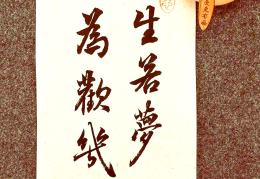 生若夢
為歡幾